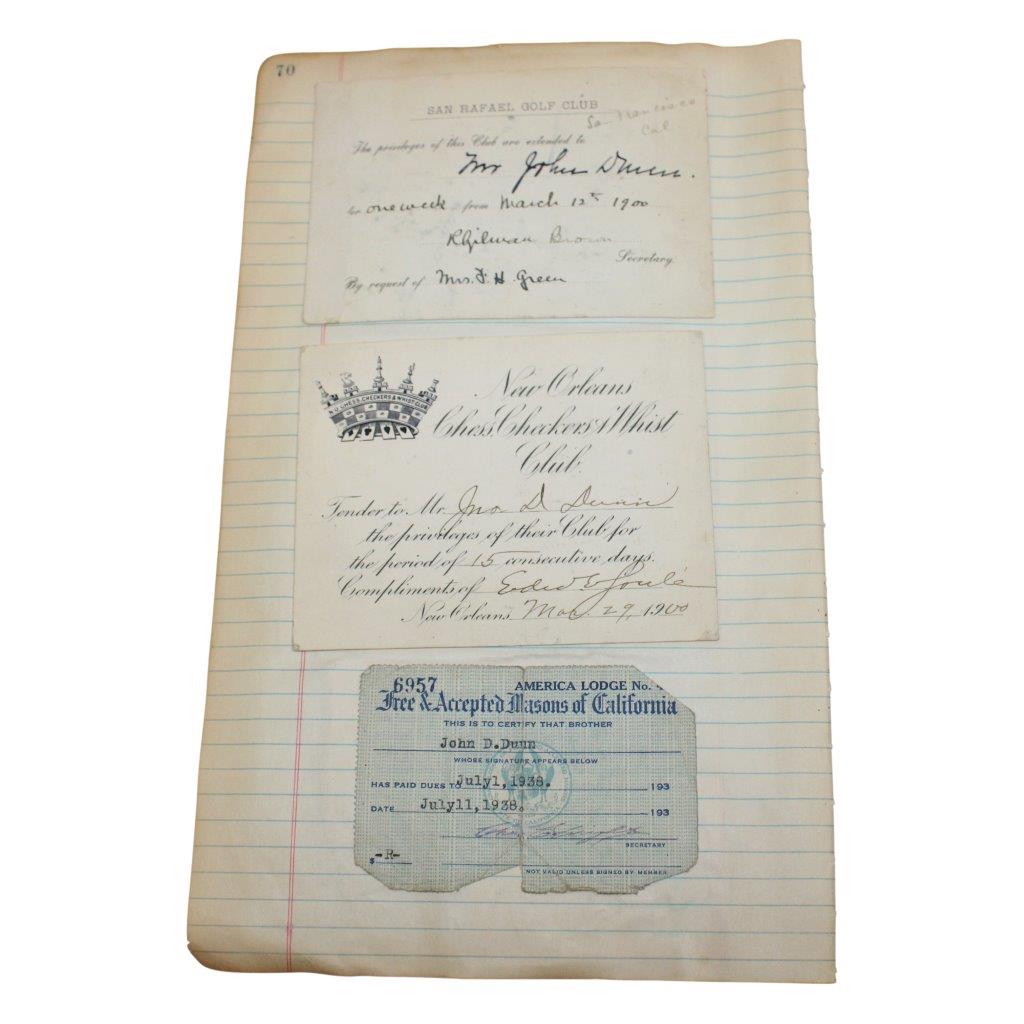 70
SAN RAFAEL GOLF CLUB
San Francisco
Cal
The privileges of this Club are extended to
Mr John Dunn.
for one week from March 12th 1900
R Gilman Brown
Secretary.
By request of Mrs. F. H. Green
N.O. CHESS, CHECKERS & WHIST CLUB
New Orleans
Chess, Checkers & Whist
Club.
Tender to Mr. Jno D Dunn
the privileges of their Club for
the period of 15 consecutive days.
Compliments of Edw E Soulé
New Orleans, Mar. 29, 1900
6957
AMERICA LODGE No.
Free & Accepted Masons of California
THIS IS TO CERTIFY THAT BROTHER
John D.Dunn
WHOSE SIGNATURE APPEARS BELOW
HAS PAID DUES TO July1,1938. 193
DATE July11,1938. 193
SECRETARY
$ -R-
NOT VALID UNLESS SIGNED BY MEMBER